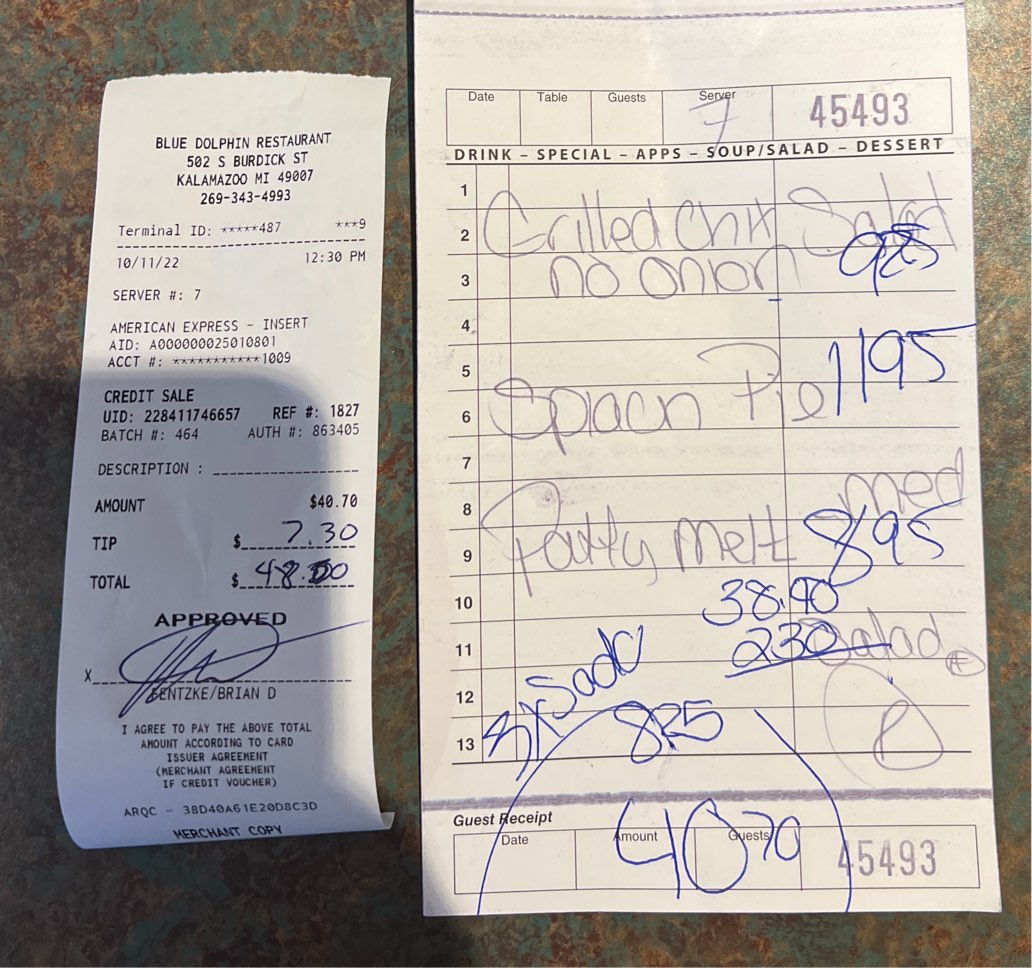 BLUE DOLPHIN RESTAURANT
502 S BURDICK ST
KALAMAZOO MI 49007
269-343-4993
Terminal ID: *****487 ***9
10/11/22 12:30 PM
SERVER #: 7
AMERICAN EXPRESS - INSERT
AID: A000000025010801
ACCT #: ***********1009
CREDIT SALE
UID: 228411746657 REF #: 1827
BATCH #: 464 AUTH #: 863405
DESCRIPTION :
AMOUNT $40.70
TIP $ 7.30
TOTAL $ 48.00
APPROVED
X
BENTZKE/BRIAN D
I AGREE TO PAY THE ABOVE TOTAL
AMOUNT ACCORDING TO CARD
ISSUER AGREEMENT
(MERCHANT AGREEMENT
IF CREDIT VOUCHER)
ARQC - 38D40A61E20D8C3D
MERCHANT COPY
Date Table Guests Server 45493
7
DRINK - SPECIAL - APPS - SOUP/SALAD - DESSERT
1
2 Grilled Chix Salad
3 no onion 985
4
5 1195
6 Spiach Pie
7
8 med
9 Patty Melt 895
10 38.40
11 230 Salad
12
13 3x 825
Guest Receipt
Date Amount Guests 45493
4070